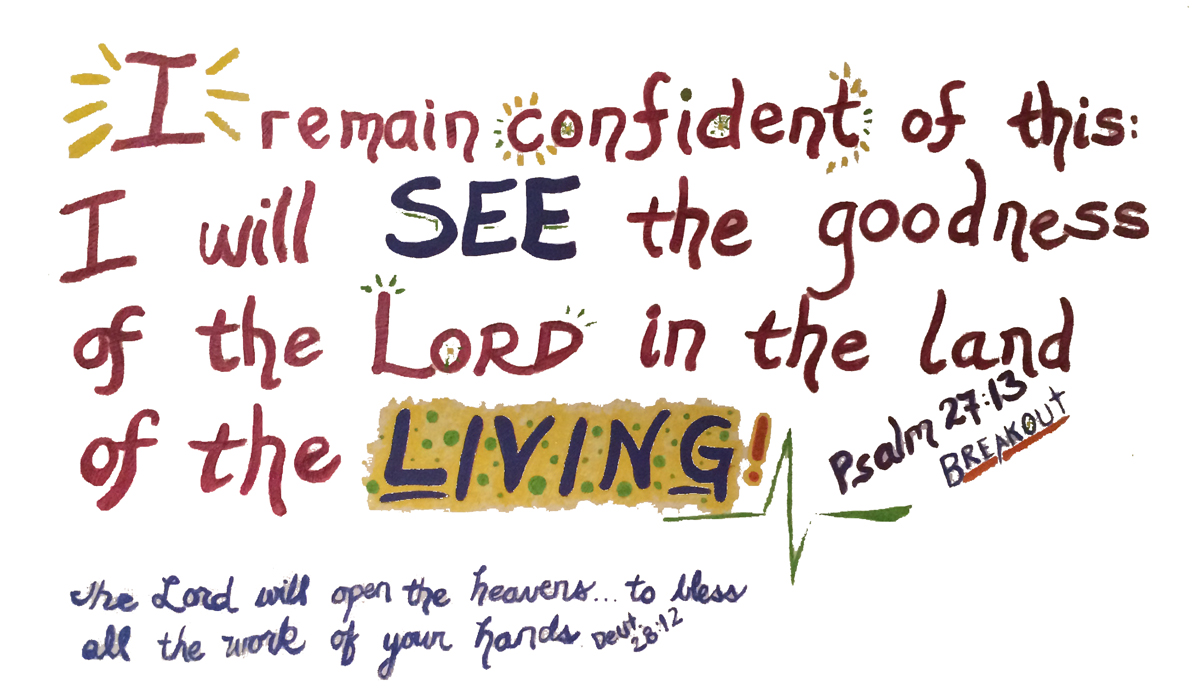 I remain confident of this:
I will SEE the goodness
of the LORD in the land
of the LIVING!
Psalm 27:13
BREAKOUT
The Lord will open the heavens... to bless
all the work of your hands Deut. 28:12